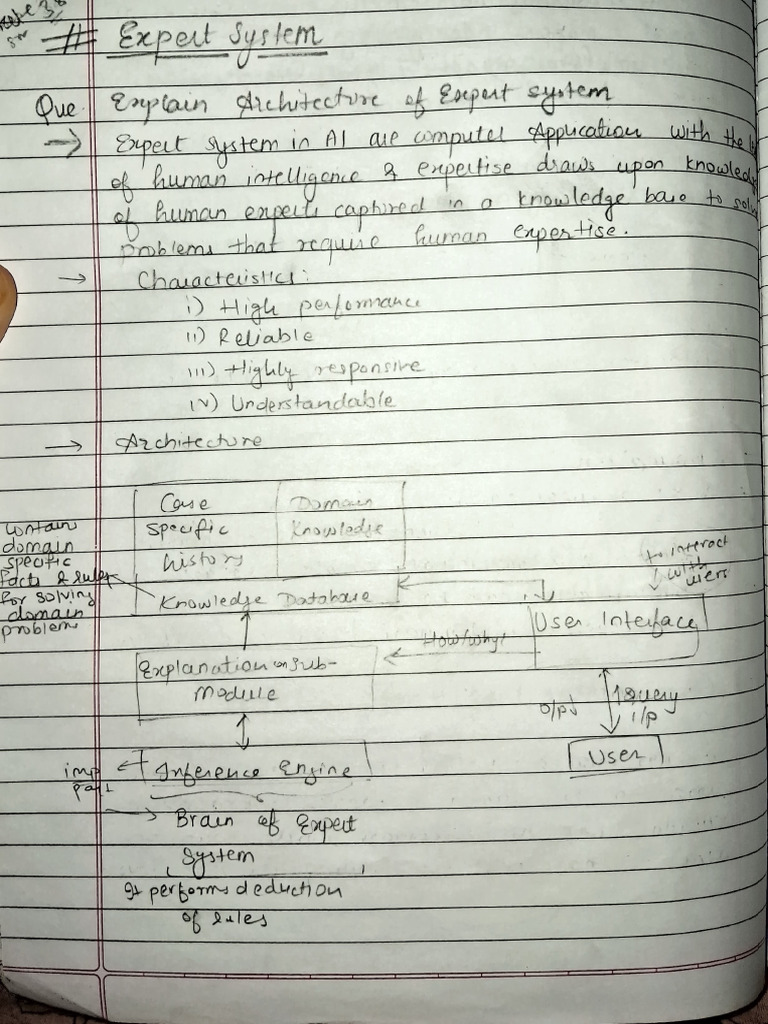 # Expert System
Que. Explain Architecture of Expert system
→ Expert system in AI are computer Application with the
of human intelligence & expertise draws upon knowledge
of human experts captured in a knowledge base to solve
problems that require human expertise.
→ Characteristics:
i) High performance
ii) Reliable
iii) Highly responsive
iv) Understandable
→ Architecture
Case
specific
history
Domain
Knowledge
contain
domain
specific
facts & rules
for solving
domain
problem
Knowledge Database
to interact
with
users
User Interface
How/why?
Explanation sub-
Module
O/P↓
↑Query
I/P
User
imp
part
Inference Engine
→ Brain of Expert
System
It performs deduction
of rules